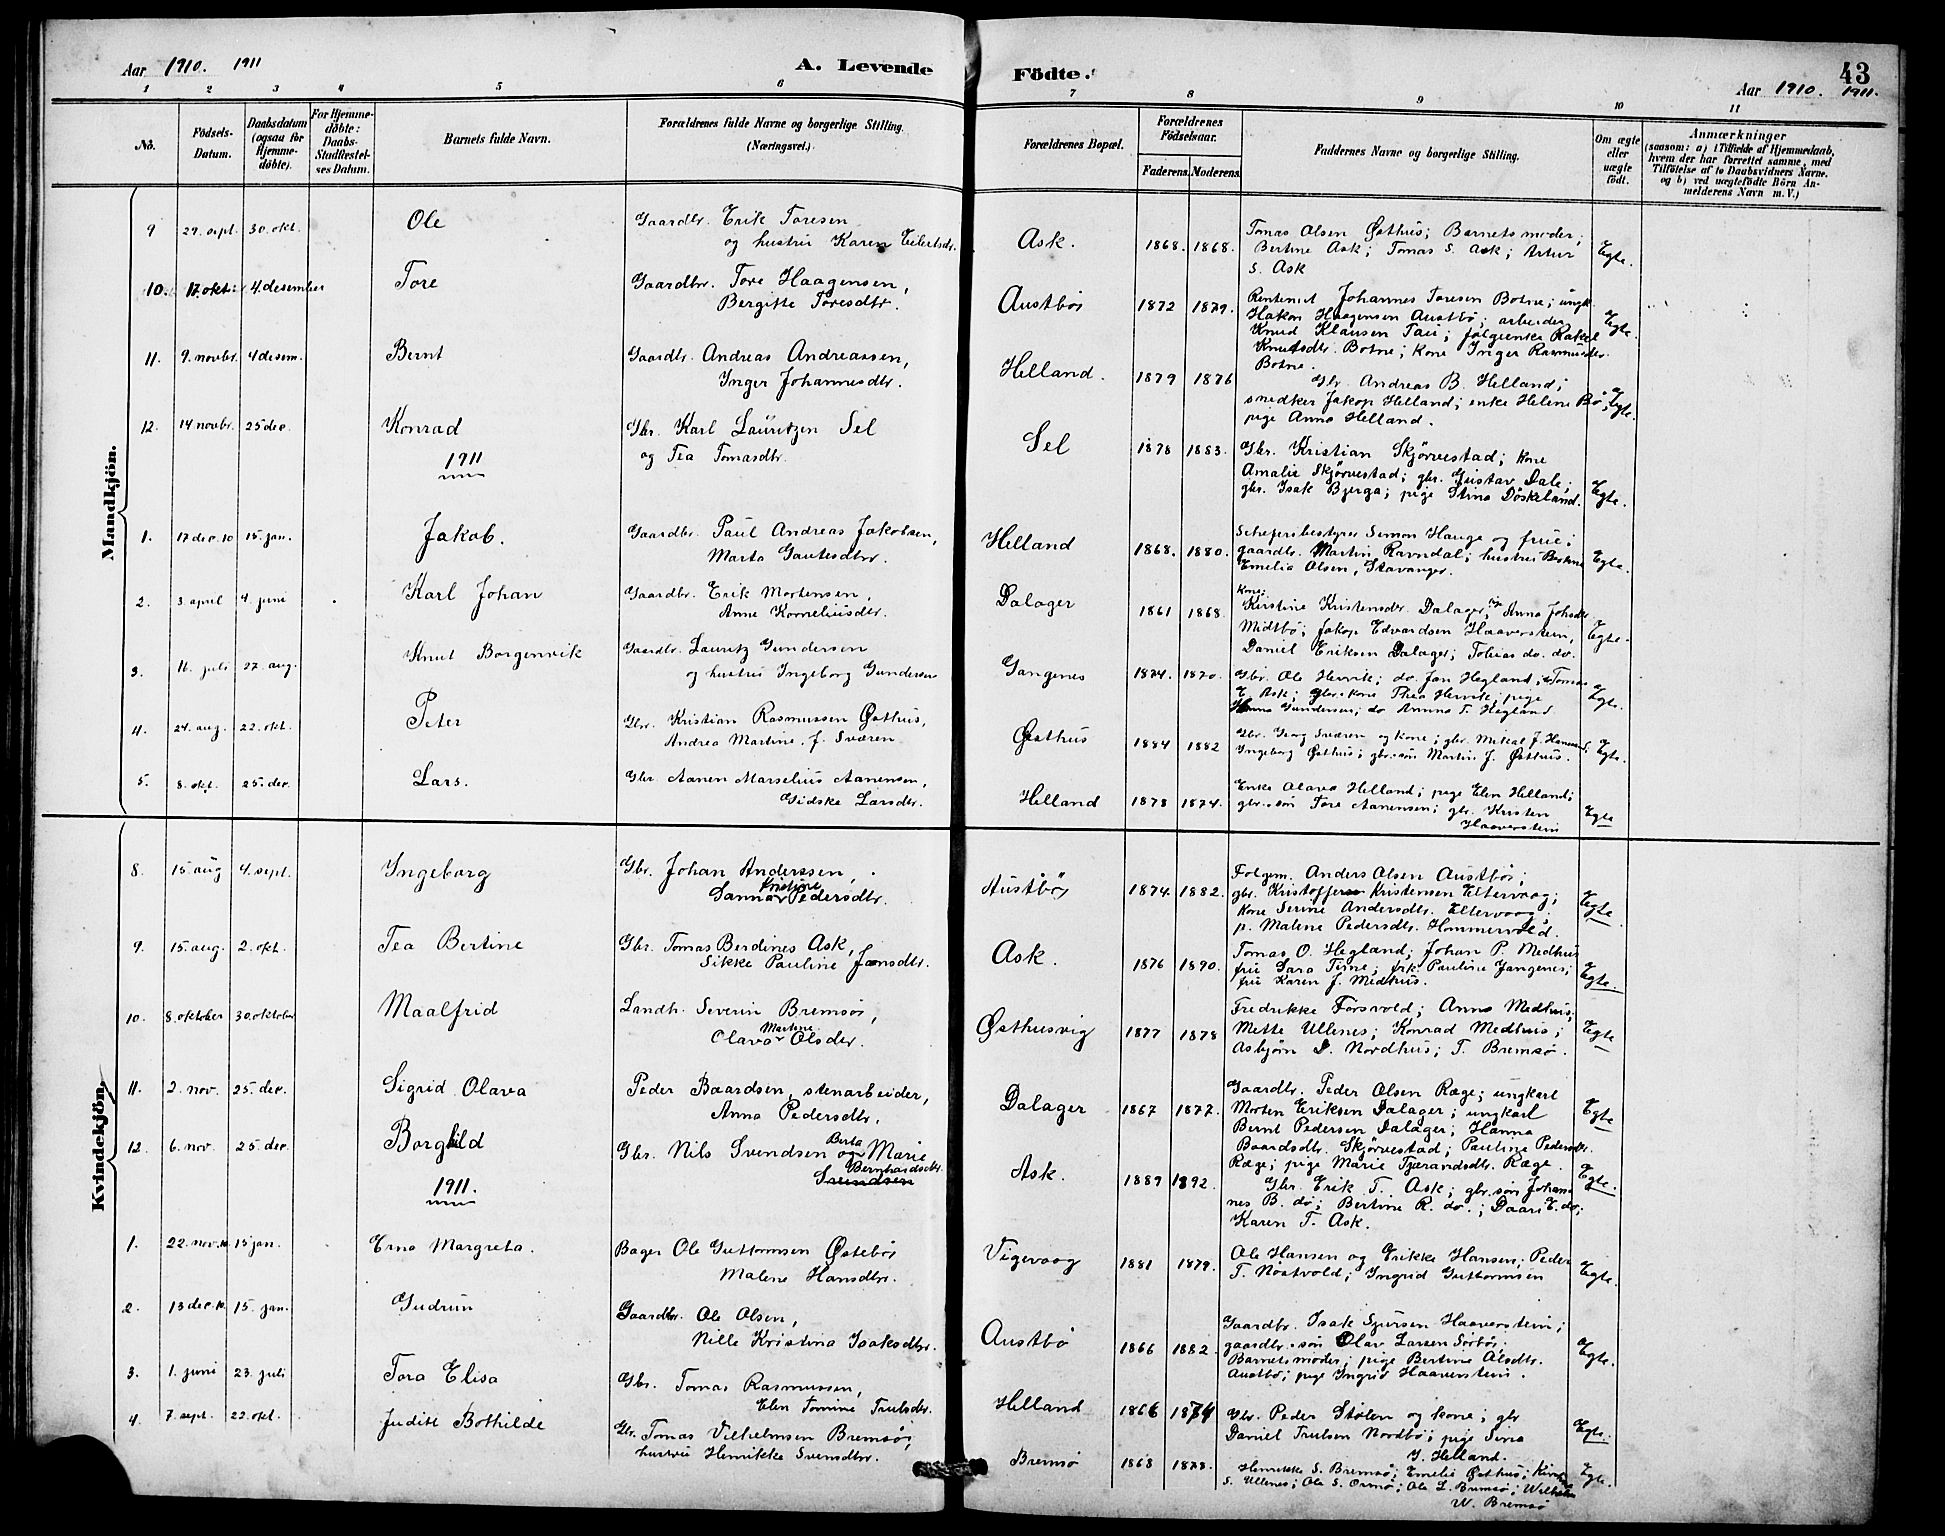 Aar 1910. 1911
A. Levende Födte.
Aar 1910. 1911.
43
1 2 3 4 5 6 7 8 9 10 11
No.
Födsels-Datum.
Daabsdatum (ogsaa for Hjemme-döbte).
For Hjemme-döbte: Daabs-Stadfæstel-ses Datum.
Barnets fulde Navn.
Forældrenes fulde Navne og borgerlige Stilling. (Næringsvei.)
Forældrenes Bopæl.
Forældrenes Födselsaar.
Faderens. Moderens.
Faddernes Navne og borgerlige Stilling.
Om ægte eller uægte født.
Anmærkninger
(saasom: a) i Tilfælde af Hjemmedaab, hvem der har forrettet samme, med Tilföielse af to Daabsvidners Navne, og b) ved uægtefödte Börn An-melderens Navn m. V.)
Mandkjön.
9 29. sept. 30. okt. Ole Gaardbr. Erik Toresen Ask. 1868. 1868. Tomas Olsen Østhus; Barnets moder;
og hustru Karen Eilertsdr. Bertine Ask; Tomas S. Ask; Artur Egte.
S. Ask
10. 17. okt. 4. desember Tore Gaardbr. Tore Haagensen, Austbøs 1872 1879. Rentenist Johannes Toresen Botne; ungk.
Bergitte Toresdtr. Hakon Haagensen Austbø; arbeider
Knud Klausen Tau; følgeenke Rakel Egte.
Knutsdtr. Botne; kone Inger Rasmusdtr.
Botne.
11. 9. novbr. 4 desem. Bernt Gaardbr. Andreas Andreassen, Helland. 1879 1876 Gbr. Andreas B. Helland;
Inger Johannesdtr. snedker Jakop Helland; enke Helene Bø; Egte.
pige Anna Helland.
12. 14 novbr. 25 dec. Konrad Gbr. Karl Lauritzen Sel Sel 1878 1883. Gbr. Kristian Skjørvestad; kone
og Tea Tomasdtr. Amalie Skjørvestad; gbr. Gustav Dale;
gbr. Isak Bjerga; pige Stina Døskeland. Egte.
1911
1. 17 dec. 10 15. jan. Jakob. Gaardbr. Paul Andreas Jakobsen, Helland 1868. 1880. Simon Hauge og frue;
Marta Gautesdtr. gaardbr. Martin Ravndal; hustru Egte.
Emelia Olsen, Stavanger.
2. 3 april 4. juni Karl Johan Gaardbr. Erik Mortensen, Dalager 1861 1868 Kone
Anne Korneliusdtr. Kirstine Kristensdtr. Dalager; Anna Johsdtr.
Midtbø; Jakop Edvardsen Haaverstein, Egte.
Daniel Eriksen Dalager; Tobias do. do.
3. 16. juli 27. aug. Knut Borgenvik Gaardbr. Lauritz Gundersen Gangenes 1874. 1870. Gbr. Ole Hervik; do. Jan Hegland; Tomas
og hustru Ingeborg Gundersen E. Ask; gbr.kone Thea Hervik; pige Egte.
Hanna Gundersen; do Anna T. Hegland
4. 24. aug. 22. okt. Peter Gbr. Kristian Rasmussen Østhus, Østhus 1884 1882 Gbr. Georg Sværen og kone; gbr. Mikal J.
Andrea Martine, f. Sværen Ingeborg Østhus; gbr.søn Martin J. Østhus. Egte.
5. 8. okt. 25. der. Lars. Gbr Aanen Marselius Aanensen, Helland 1878 1874. Enke Olava Helland; pige Elen Helland;
Gidske Larsdtr. gbr.søn Tore Aanensen; gbr. Kristen Egte
Haaverstein
Kvindekjön.
8. 15 aug 4. sept. Ingeborg Gbr. Johan Anderssen, Austbøs 1874. 1882. Folgem. Anders Olsen Austbøs;
Kristine
Sanna Pedersdtr. gbr. Kristoffer Kristensen Eltervaag; Egte
kone Serine Andersdtr. Eltervaag;
p. Malene Pedersdtr. Hommervold.
9. 15. aug. 2. okt. Tea Bertine Gbr. Tomas Berdines Ask, Ask. 1876 1890. Tomas O. Hegland; Johan P. Medhus
Sikke Pauline Jansdtr. frue Sara Time; frk. Pauline Gangenes; Egte.
frue Karen J. Medhus.
10. 8. oktober 30. oktober Maalfrid Landh. Severin Bremsøs, Østhusvig 1877 1878 Fredrikke Forsvold; Anna Medhus;
Martine
Olava Olsdr. Mette Ullenes; Konrad Medhus; Egte
Asbjørn S. Nordhus; T. Bremsø.
11. 2. nov. 25. dec. Sigrid Olava Peder Baardsen, stenarbeider, Dalager 1867 1877. Gaardbr. Peder Olsen Ræge; ungkarl
Anna Pedersdtr. Morten Eriksen Dalager; ungkarl Egte
Bernt Pedersen Dalager; Hanna
Baardsdtr. Skjørvestad; Pauline Pedersdtr.
Ræge; pige Marie Tjerandsdtr. Ræge.
12. 6. nov. 25 dec. Borghild Gbr. Nils Svendsen og Berta Marie Ask. 1889 1892. Gbr. Erik T. Ask; gbr.søn Johan- Egte.
Bernhardsdtr.
Svendsen nes B. do; Bertine R. do.; Daari E. do;
Karen T. Ask.
1911.
1. 22. nov. 10 15 jan. Erna Margreta. Bager Ole Guttormsen Østebøs Vigevaag 1881 1879. Ole Hansen og Erikke Hansen; Peder
Malene Hansdtr. T. Nøstvold; Ingrid Guttormsen Egte.
2. 13 dec. 10. 15. jan. Gudrun Gaardbr. Ole Olsen, Austbø 1866 1882. Gaardbr. Isak Sjursen Haaverstein;
Nille Kristina Isaksdtr. gaardbr.søn Olav Larsen Sørbøs; Egte.
Barnets moder; pige Bertine Olsdtr.
Austbø; pige Ingrid Haaverstein.
3. 1. juni 23. juli Tora Elisa Gbr. Tomas Rasmussen, Helland 1866 1874 Gbr. Peder Stølen og kone; gbr
Elen Tomine Trulsdtr. Daniel Trulsen Nordbø; pige Sina Egte.
J. Helland.
4. 7. sept. 22. okt. Juditt Bothilde Gbr. Tomas Vilhelmsen Bremsøs, Bremsø 1868 1878. Henrikke S. Bremsø; Emelie Østhus;
hustru Henrikke Svensdtr. S. Ullenes; Ole S. Ormø; Ole L. Bremsø; Egte.
W. Bremsø